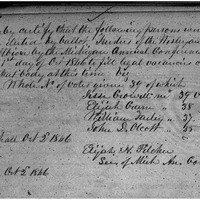 by certify that the following persons were
Elected by ballot Trustees of the Wesleyan
Albion by the Michigan Annual Conferen
1st day of Oct 1846 to fill legal vacancies
that body at this time viz
Whole No of votes given 39 of which
Jesse Crowell recd 39 V
Elijah Crane " 38
William 37
John D. Olcott " 35
Marshall Oct 2d 1846
Elijah H Pilcher
Sec. of Mich An. Co
Oct 2d 1846